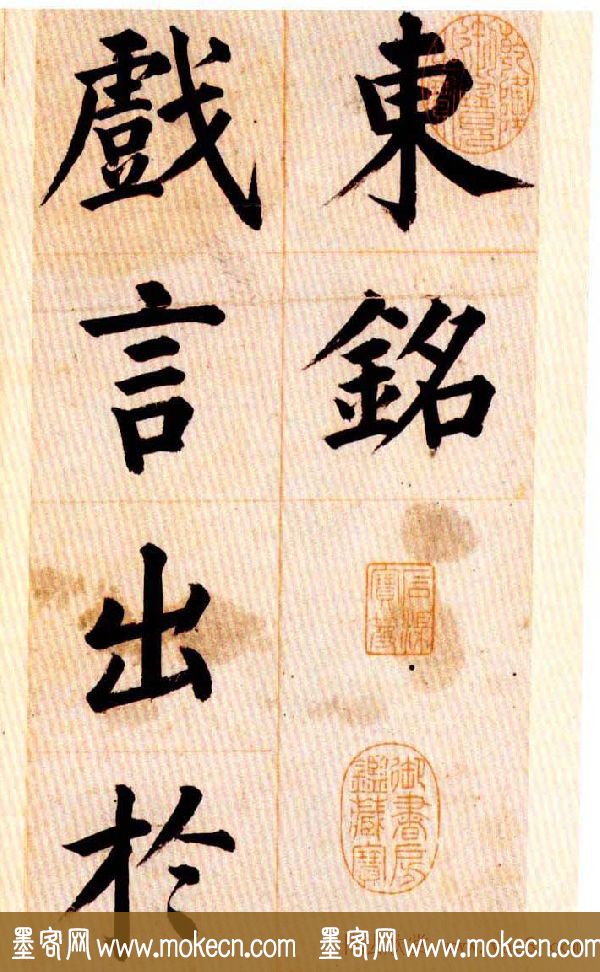 東銘
戲言出於
御書房鑑藏寶
墨客网 www.mokecn.com 墨客网 www.mokecn.com